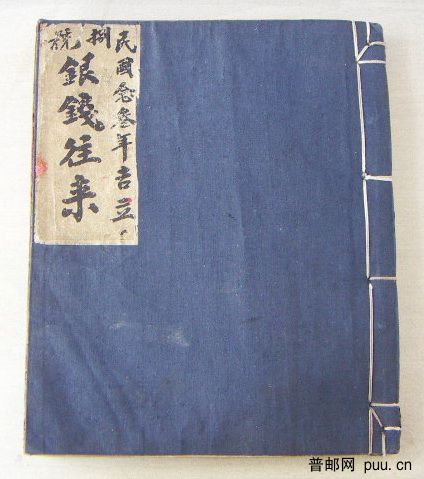 民國念叁年吉立
捌號
銀錢往来
普邮网 puu.cn